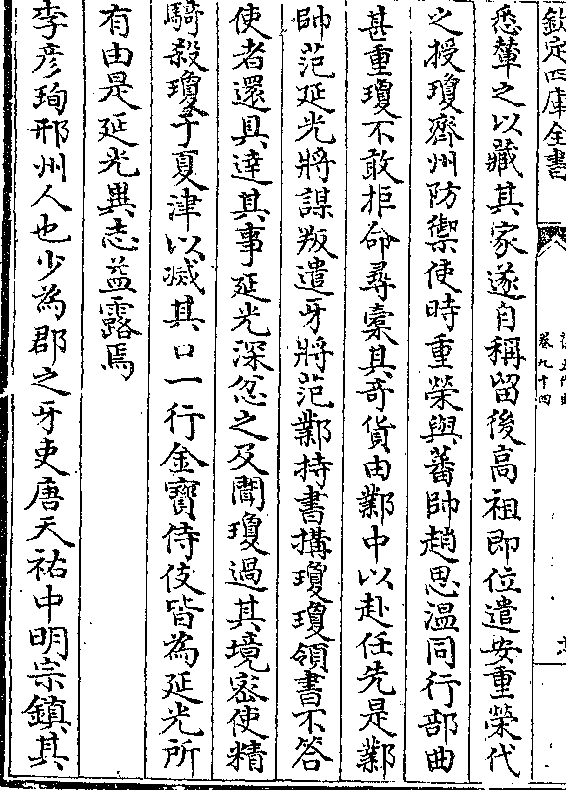 欽定四庫全書
卷九十四
悉輦之以藏其家遂自稱留後高祖即位遣安重榮代
之授瓊齊州防禦使時重榮與蕃帥趙思溫同行部曲
甚重瓊不敢拒命尋橐其奇貨由鄴中以赴任先是鄴
帥范延光將謀叛遣牙將范鄴持書搆瓊瓊領書不答
使者還具達其事延光深忿之及聞瓊過其境密使精
騎殺瓊于夏津以滅其口一行金寳侍伎皆為延光所
有由是延光異志益露焉
李彦珣邢州人也少為郡之牙吏唐天祐中明宗鎮其